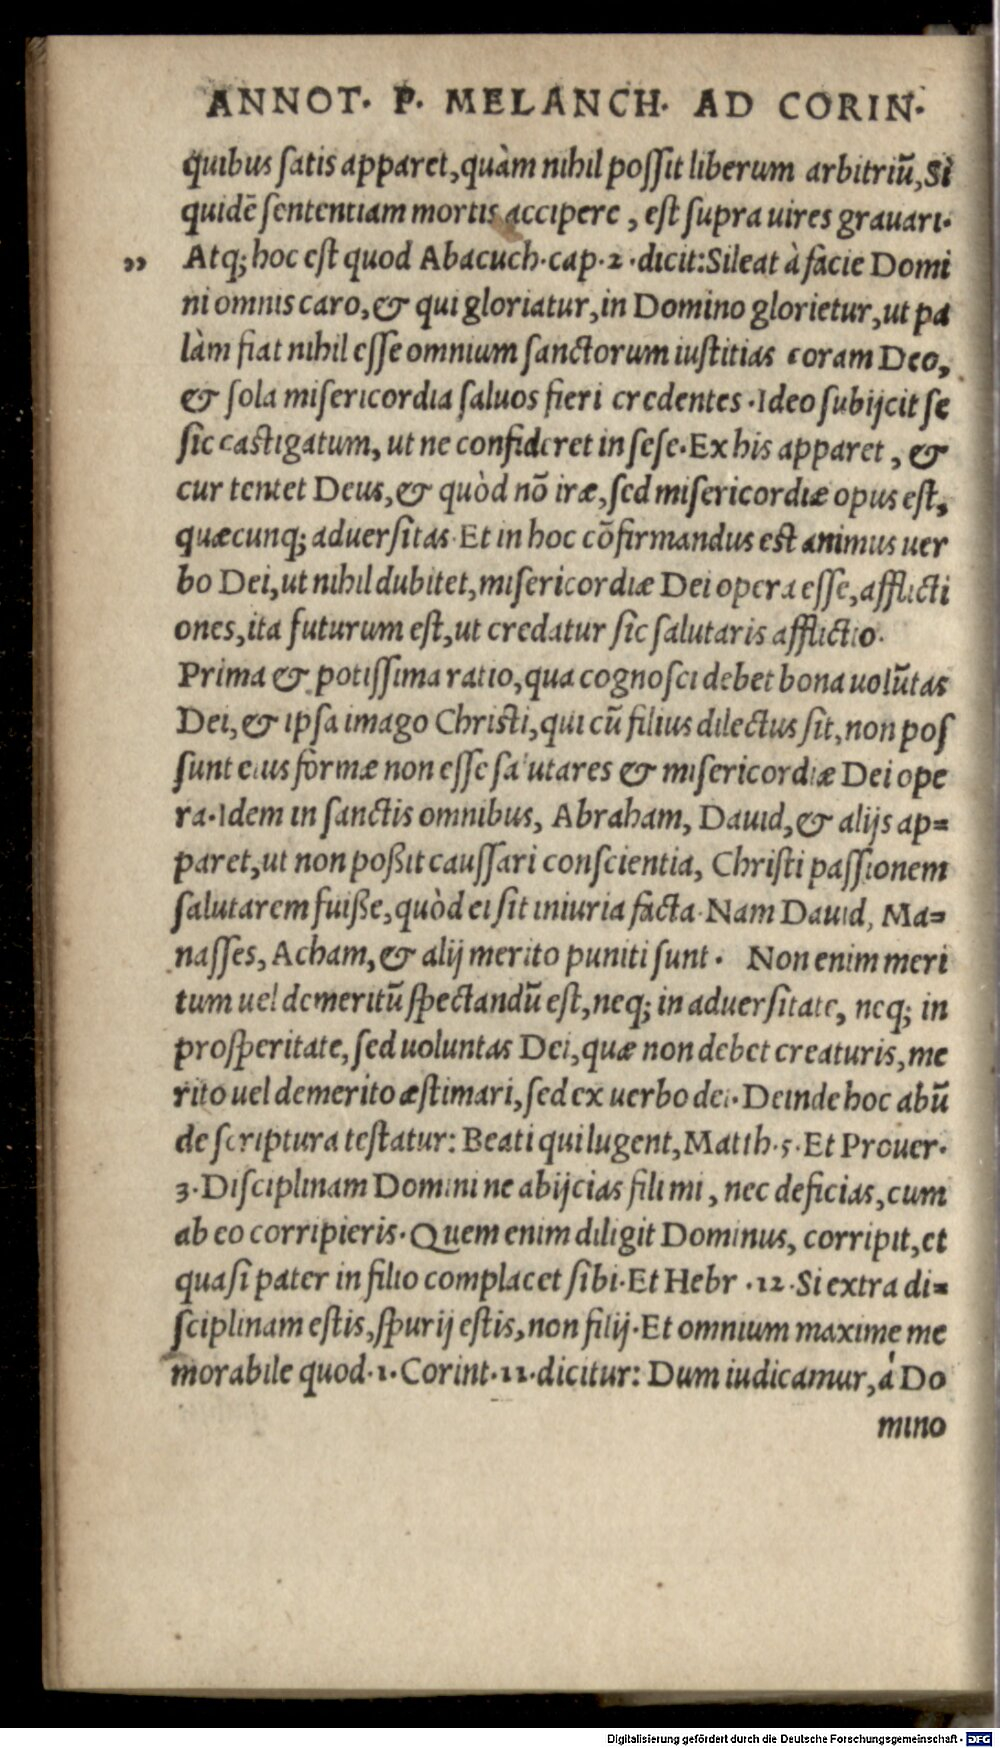 ANNOT. P. MELANCH. AD CORIN.
quibus ſatis apparet, quàm nihil poſſit liberum arbitriũ, Si
quidẽ ſententiam mortis accipere, eſt ſupra uires grauari.
„ Atq; hoc eſt quod Abacuch. cap. 2. dicit: Sileat à facie Domi
ni omnis caro, & qui gloriatur, in Domino glorietur, ut pa
làm fiat nihil eſſe omnium ſanctorum iuſtitias coram Deo,
& ſola miſericordia ſaluos fieri credentes. Ideo ſubijcit ſe
ſic caſtigatum, ut ne confideret in ſeſe. Ex his apparet, &
cur tentet Deus, & quòd nõ iræ, ſed miſericordiæ opus eſt,
quæcunq; aduerſitas. Et in hoc cõfirmandus est animus uer
bo Dei, ut nihil dubitet, miſericordiæ Dei opera eſſe, afflicti
ones, ita futurum eſt, ut credatur ſic ſalutaris afflictio.
Prima & potiſſima ratio, qua cognoſci debet bona uolũtas
Dei, & ipſa imago Chriſti, qui cũ filius dilectus ſit, non poſ
ſunt eius formæ non eſſe ſalutares & miſericordiæ Dei ope
ra. Idem in ſanctis omnibus, Abraham, Dauid, & alijs ap=
paret, ut non poßit cauſſari conſcientia, Chriſti paſſionem
ſalutarem fuiße, quòd ei ſit iniuria facta. Nam Dauid, Ma=
naſſes, Acham, & alij merito puniti ſunt. Non enim meri
tum uel demeritũ ſpectandũ eſt, neq; in aduerſitate, neq; in
proſperitate, ſed uoluntas Dei, quæ non debet creaturis, me
rito uel demerito æſtimari, ſed ex uerbo dei. Deinde hoc abũ
de ſcriptura teſtatur: Beati qui lugent, Matth. 5. Et Prouer.
3. Diſciplinam Domini ne abijcias fili mi, nec deficias, cum
ab eo corripieris. Quem enim diligit Dominus, corripit, et
quaſi pater in filio complacet ſibi. Et Hebr. 12. Si extra di=
ſciplinam eſtis, ſpurij eſtis, non filij. Et omnium maxime me
morabile quod. 1. Corint. 11. dicitur: Dum iudicamur, à Do
mino
Digitalisierung gefördert durch die Deutsche Forschungsgemeinschaft - DFG